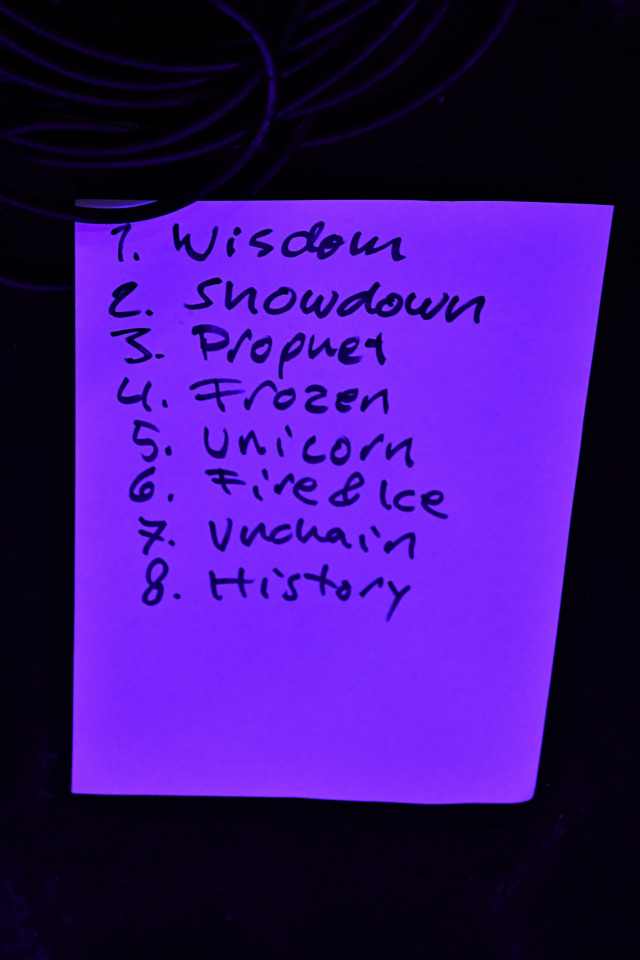 1. Wisdom
2. Showdown
3. Prophet
4. Frozen
5. Unicorn
6. Fire & Ice
7. Unchain
8. History